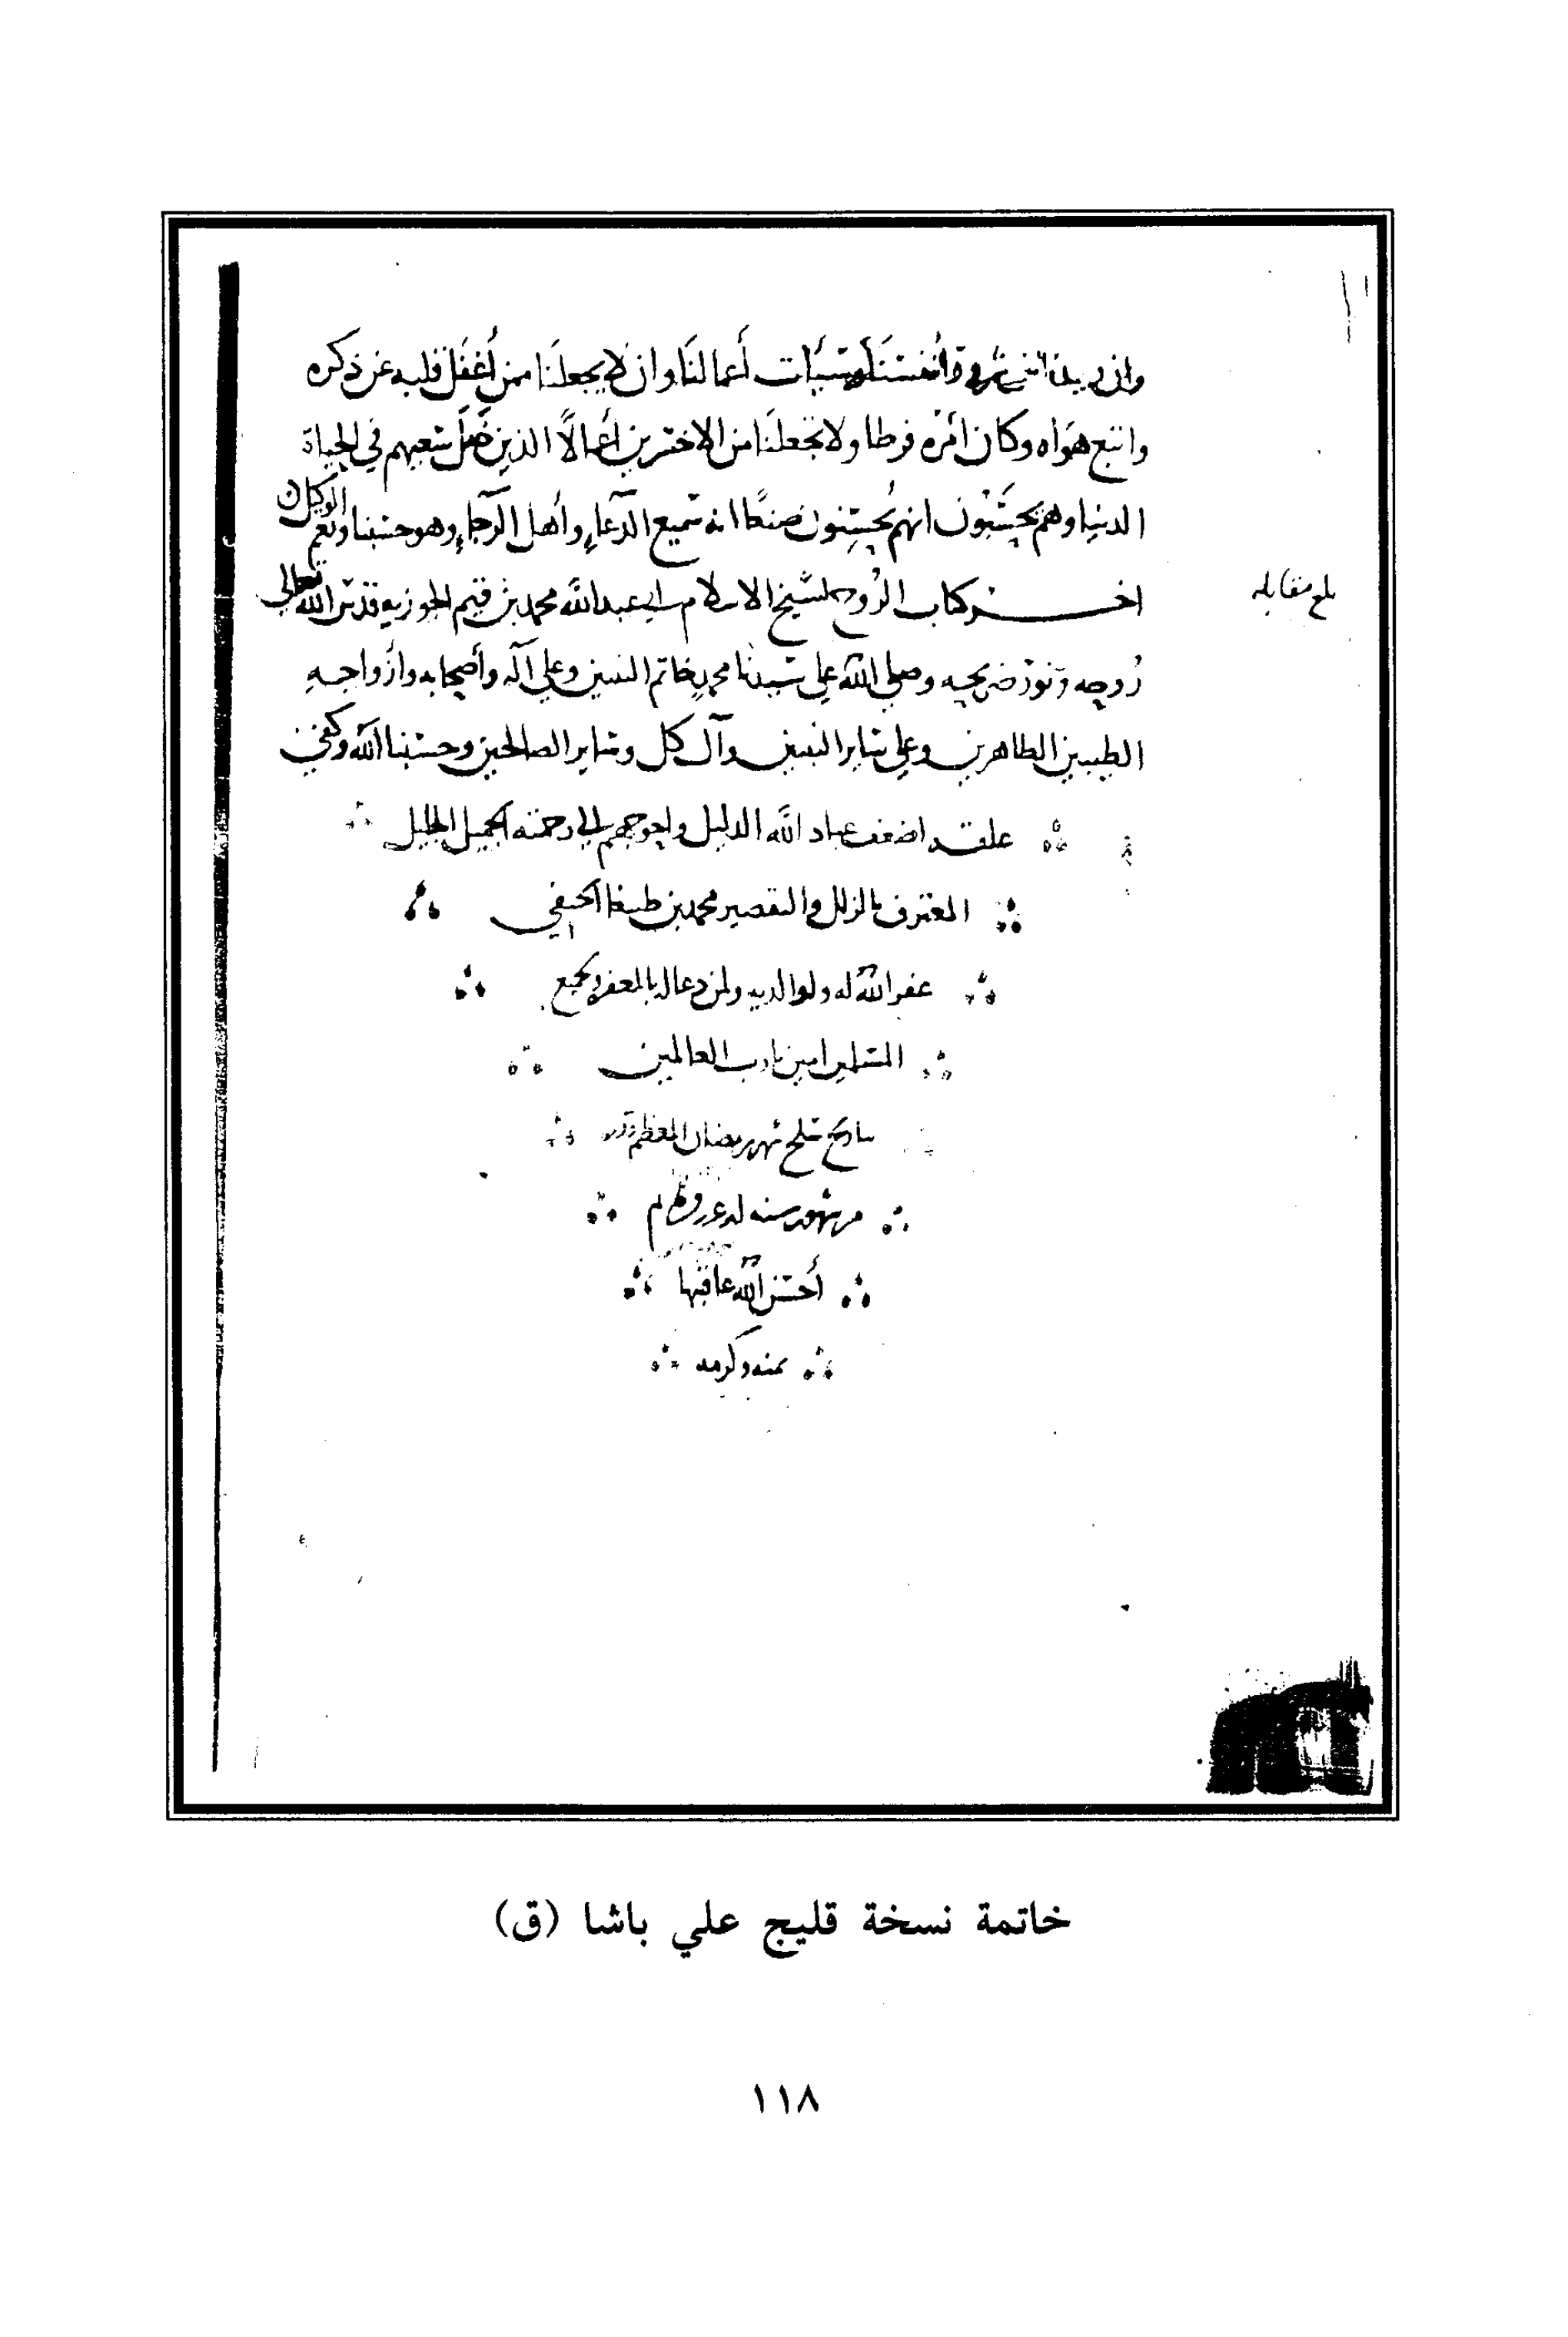 وان يعيذنا من شرور أنفسنا وسيئات أعمالنا وان لا يجعلنا ممن أغفل قلبه عن ذكره
واتبع هواه وكان أمره فرطا ولا يجعلنا من الاخسرين أعمالًا الذين ضل سعيهم في الحياة
الدنيا وهم يحسبون انهم يحسنون صنعًا انه سميع الدعاء وأهل الرجاء وهو حسبنا ونعم الوكيل
اخر كتاب الروح لشيخ الاسلام ابي عبد الله محمد بن قيم الجوزيه قدس الله تعالى
بلغ مقابله
روحه ونور ضريحه وصلى الله على سيدنا محمد خاتم النبيين وعلى آله وأصحابه وازواجه
الطيبين الطاهرين وعلى ساير النبيين وآل كل وساير الصالحين وحسبنا الله وكفى
علقه اضعف عباد الله الدليل واحوجهم الى رحمته الجميل الجليل
المعترف بالزلل والتقصير محمد بن طيبغا الحنفي
غفر الله له ولوالديه ولمن دعا له بالمغفره ولجميع
المسلمين امين يارب العالمين
بتاريخ سلخ شهر رمضان المعظم
من شهور سنه
أحسن الله عاقبتها
بمنه وكرمه
خاتمة نسخة قليج علي باشا (ق)
١١٨